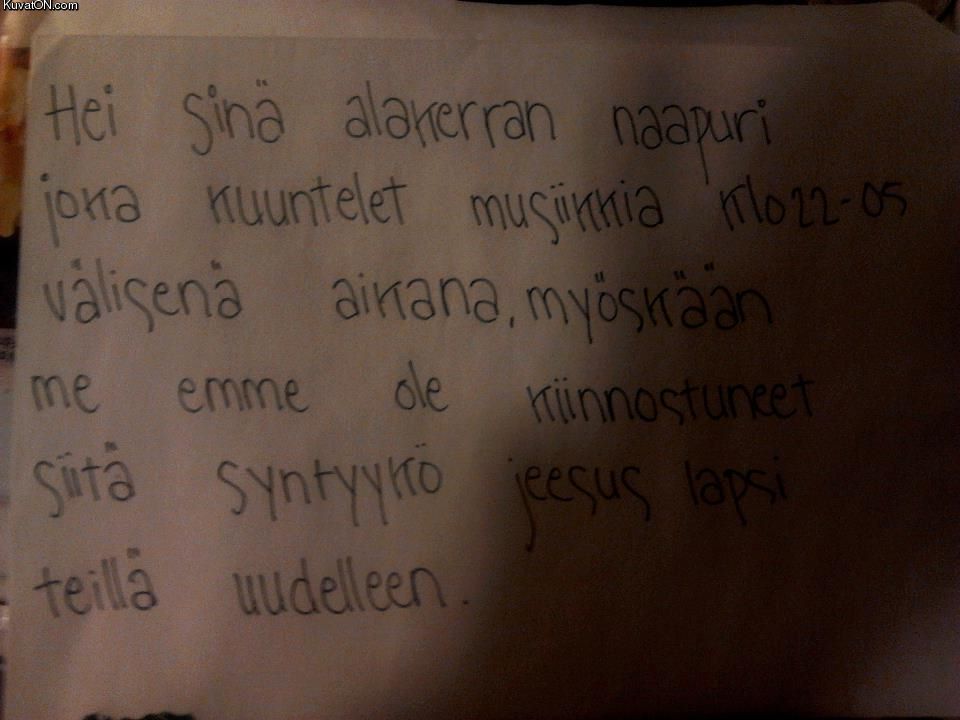 KuvatON.com
Hei sinä alakerran naapuri
joka kuuntelet musiikkia klo 22-05
välisenä aikana, myöskään
me emme ole kiinnostuneet
siitä syntyykö jeesus lapsi
teillä uudelleen.